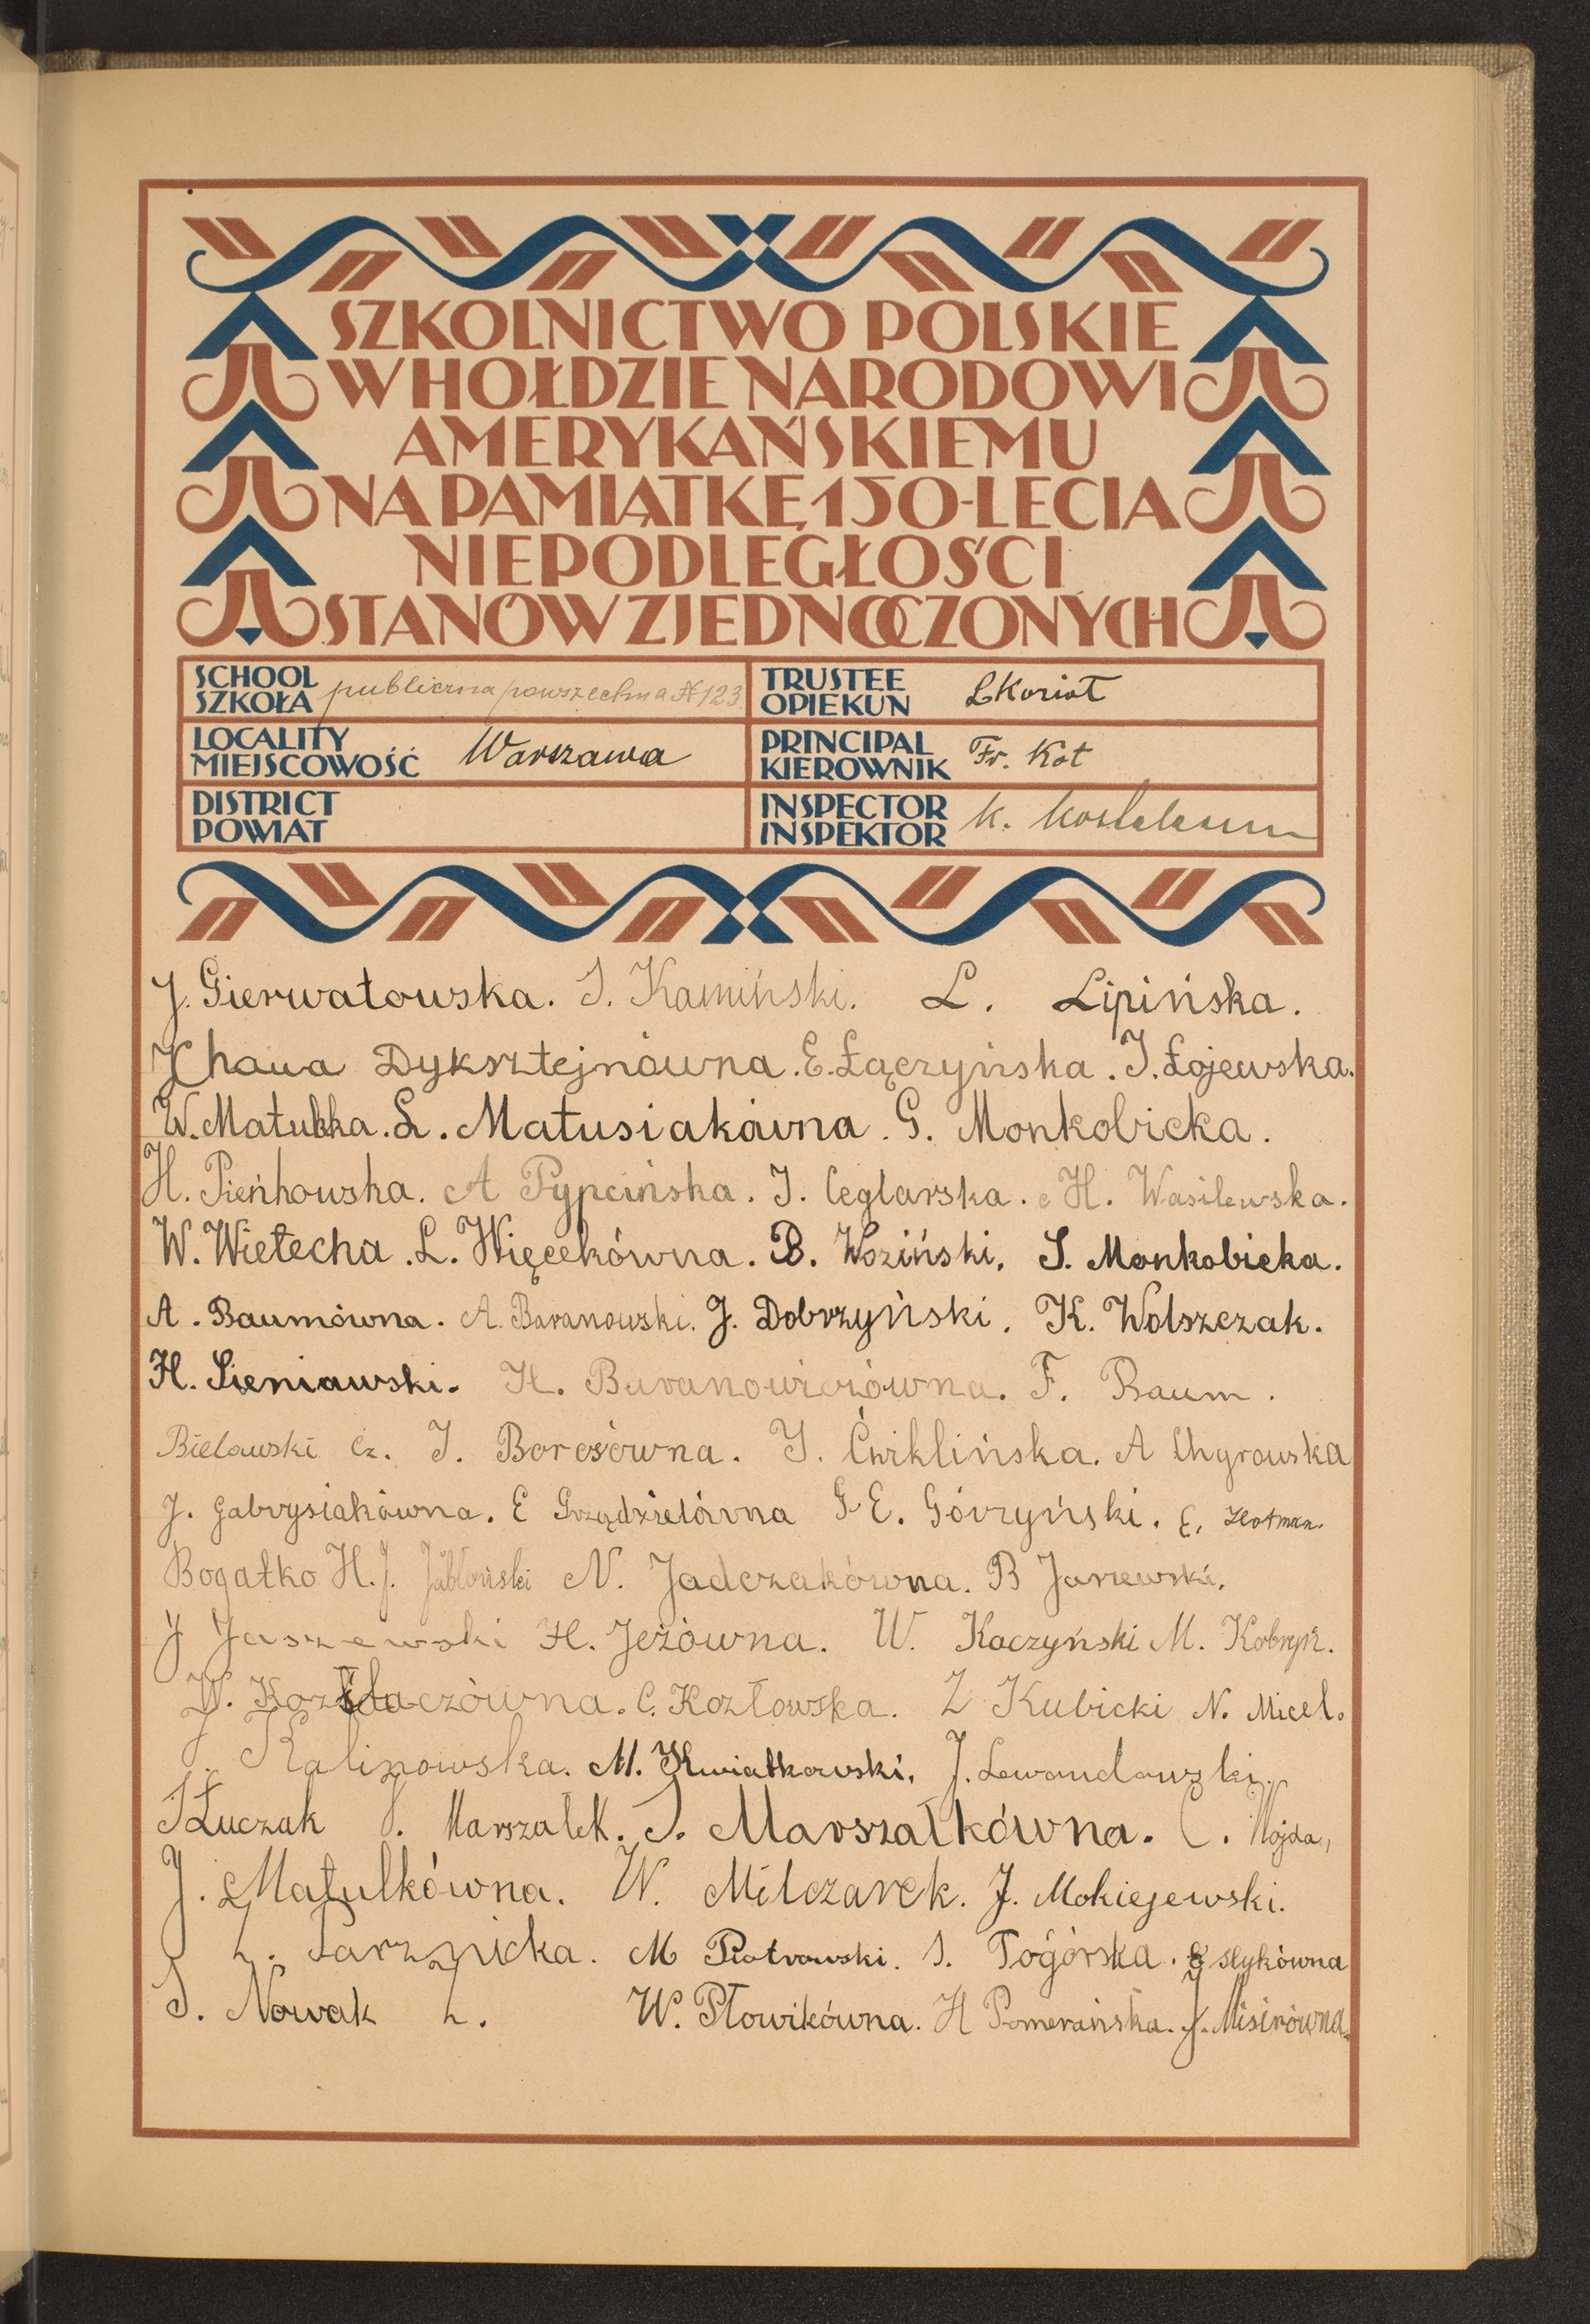 SZKOLNICTWO POLSKIE
W HOŁDZIE NARODOWI
AMERYKAŃSKIEMU
NA PAMIĄTKĘ 150-LECIA
NIEPODLEGŁOŚCI
STANÓW ZJEDNOCZONYCH
SCHOOL
SZKOŁA publiczna powszechna № 123
TRUSTEE
OPIEKUN
LOCALITY
MIEJSCOWOŚĆ Warszawa
PRINCIPAL
KIEROWNIK Fr. Kot
DISTRICT
POWIAT
INSPECTOR
INSPEKTOR K.
J. Gierwatowska. S. Kamiński. L. Lipińska.
Chawa Dyksztejnówna. E. Łączyńska. J. Łojewska.
W. Matulka. L. Matusiakówna. G. Monkobicka.
H. Pieńkowska. A Pypcińska. J. Ceglarska. H. Wasilewska.
W. Wietecha. L. Więcekówna. B. Woziński. S. Monkobicka.
A. Baumówna. A. Baranowski. J. Dobrzyński. K. Wolszczak.
H. Sieniawski. H. Baranowiczówna. F. Baum.
Bielawski Cz. J. Borcsówna. J. Ćwiklińska. A Chyrowska
J. Gabrysiakówna. E Grządzielówna G E. Górzyński. E.
Bogatko H. J. Jabłoński N. Jadczakówna. B
J Jaszewski H. Jeżówna. W. Kaczyński M.
W. C. Kozłowska. Z Kubicki N. Micel.
J. Kalinowska. M. Kwiatkowski. J. Lewandowski.
S Łuczak J. Marszałek. S. Marszałkówna. C. Wojda,
J. Matulkówna. W. Milczarek. J. Mokiejewski.
L. Parznicka. M Piotrowski. S. Pogórska.
S. Nowak L. W. Płowikówna. H Pomerańska. J. Misirówna.